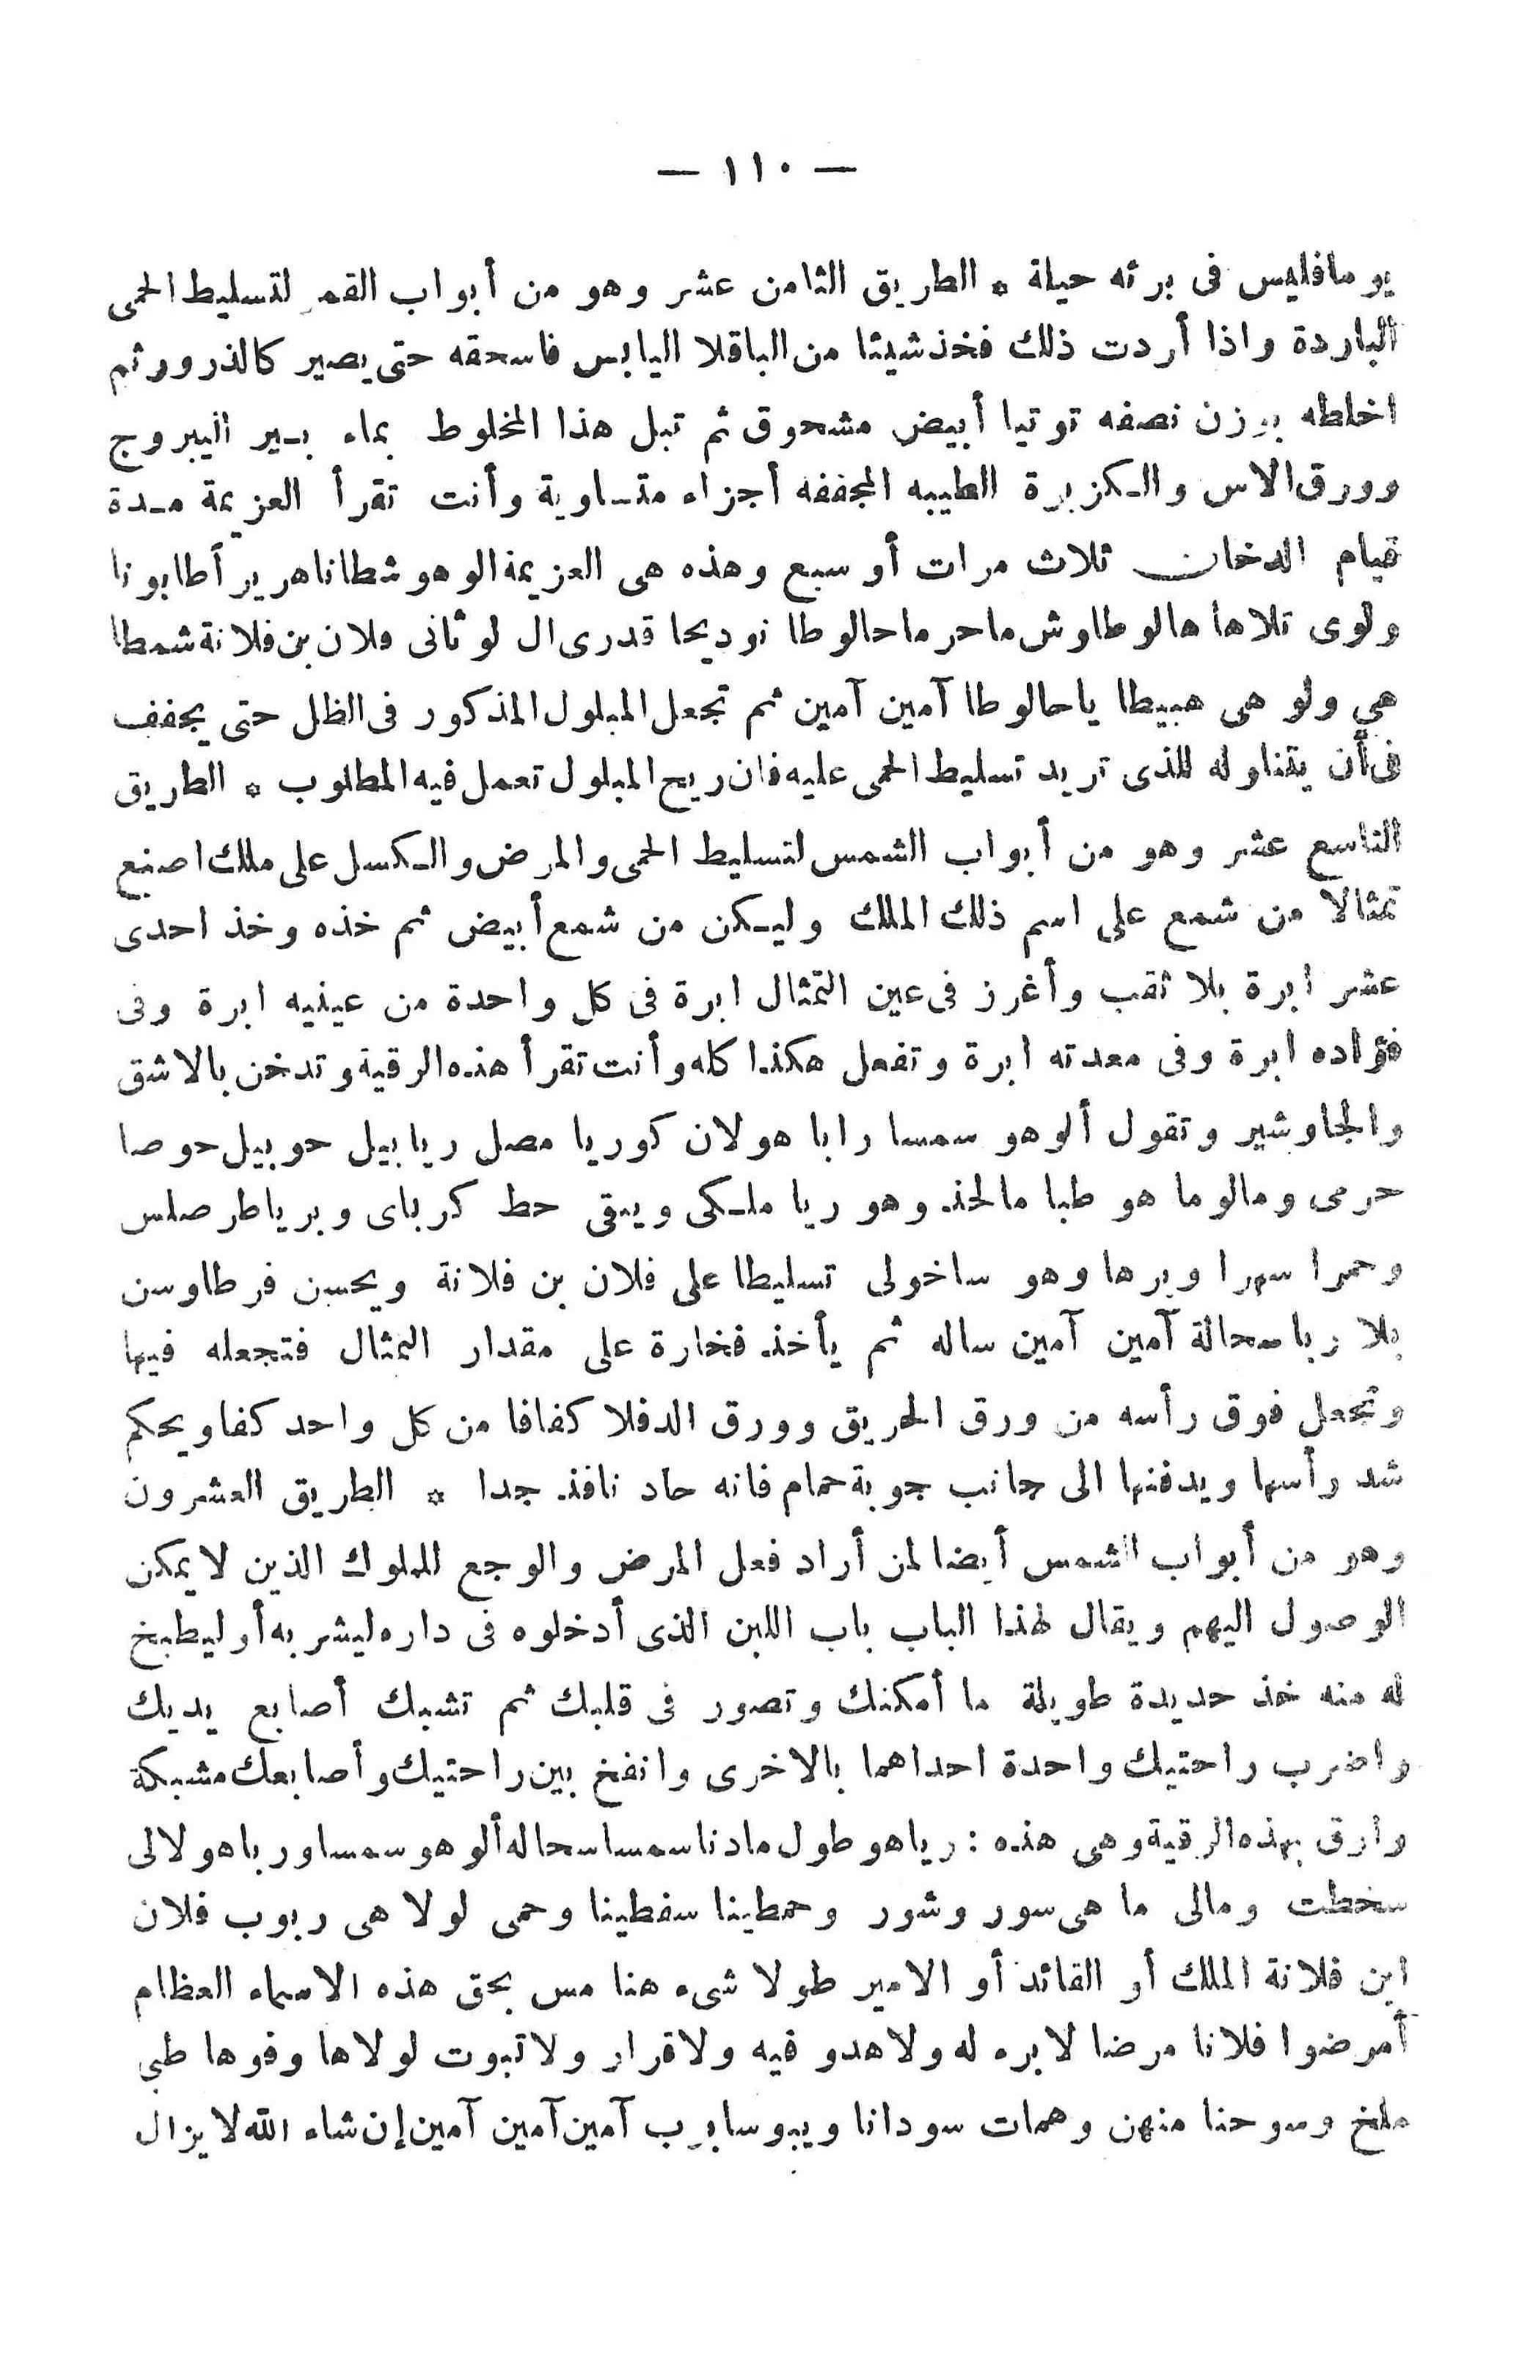 — ١١٠ —
يوما فليس فى برئه حيلة * الطريق الثامن عشر وهو من أبواب القمر لتسليط الحمى
الباردة واذا أردت ذلك فخذ شيئا من الباقلا اليابس فاسحقه حتى يصير كالذرور ثم
اخلطه بوزن نصفه توتيا أبيض مشحوق ثم تبل هذا المخلوط بماء بـير اليبروج
وورق الاس والكزبرة الطيبه المجففه أجزاء متساوية وأنت تقرأ العزيمة مـدة
قيام الدخان ثلاث مرات أو سبع وهذه هى العزيمة الوهو شطانا هرير أطابونا
ولوى تلاها هالوطاوش ماحر ماحالوطا نوديحا قدرى ال لوثانى فلان بن فلانة شمطا
هي ولو هى هبيطا ياحالوطا آمين آمين ثم تجعل المبلول المذكور فى الظل حتى يجفف
فى أن يتناوله للذى تريد تسليط الحمى عليه فان ريح المبلول تعمل فيه المطلوب * الطريق
التاسع عشر وهو من أبواب الشمس لتسليط الحمى والمرض والكسل على ملك اصنع
تمثالا من شمع على اسم ذلك الملك وليكن من شمع أبيض ثم خذه وخذ احدى
عشر ابرة بلا ثقب وأغرز فى عين التمثال ابرة فى كل واحدة من عينيه ابرة وفى
فؤاده ابرة وفى معدته ابرة وتفعل هكذا كله وأنت تقرأ هذه الرقية وتدخن بالاشق
والجاوشير وتقول ألوهو سمسا رابا هولان كوريا مصل ريابيل حوبيل حوصا
حرمى ومالوما هو طبا مالخذ وهو ريا ملكى ويبقى حط كرباى وبرياطر صلس
وحمرا سهرا وبرها وهو ساخولى تسليطا على فلان بن فلانة ويحسن فرطاوسن
بلا ربا سحالة آمين آمين ساله ثم يأخذ فخارة على مقدار التمثال فتجعله فيها
وتجعل فوق رأسه من ورق الحريق وورق الدفلا كفافا من كل واحد كفا ويحكم
شد رأسها ويدفنها الى جانب جوبة حمام فانه حاد نافذ جدا * الطريق العشرون
وهو من أبواب الشمس أيضا لمن أراد فعل المرض والوجع للملوك الذين لا يمكن
الوصول اليهم ويقال لهذا الباب باب اللبن الذى أدخلوه فى داره ليشربه أو ليطبخ
له منه خذ حديدة طويلة ما أمكنك وتصور فى قلبك ثم تشبك أصابع يديك
واضرب راحتيك واحدة احداهما بالاخرى وانفخ بين راحتيك وأصابعك مشبكة
وارق بهذه الرقية وهى هذه : رياهو طول مادنا سمسا سحاله ألوهو سمسا وربا هولالى
سخطت ومالى ما هى سور وشور وحمطينا سفطينا وحمى لولا هى ربوب فلان
ابن فلانة الملك أو القائد أو الامير طولا شىء هنا مس بحق هذه الاسماء العظام
أمرضوا فلانا مرضا لابرء له ولا هدو فيه ولا قرار ولا ثبوت لولاها وفوها طبى
ملخ وسوحنا منهن وهمات سودانا ويبوسابرب آمين آمين آمين إن شاء الله لا يزال